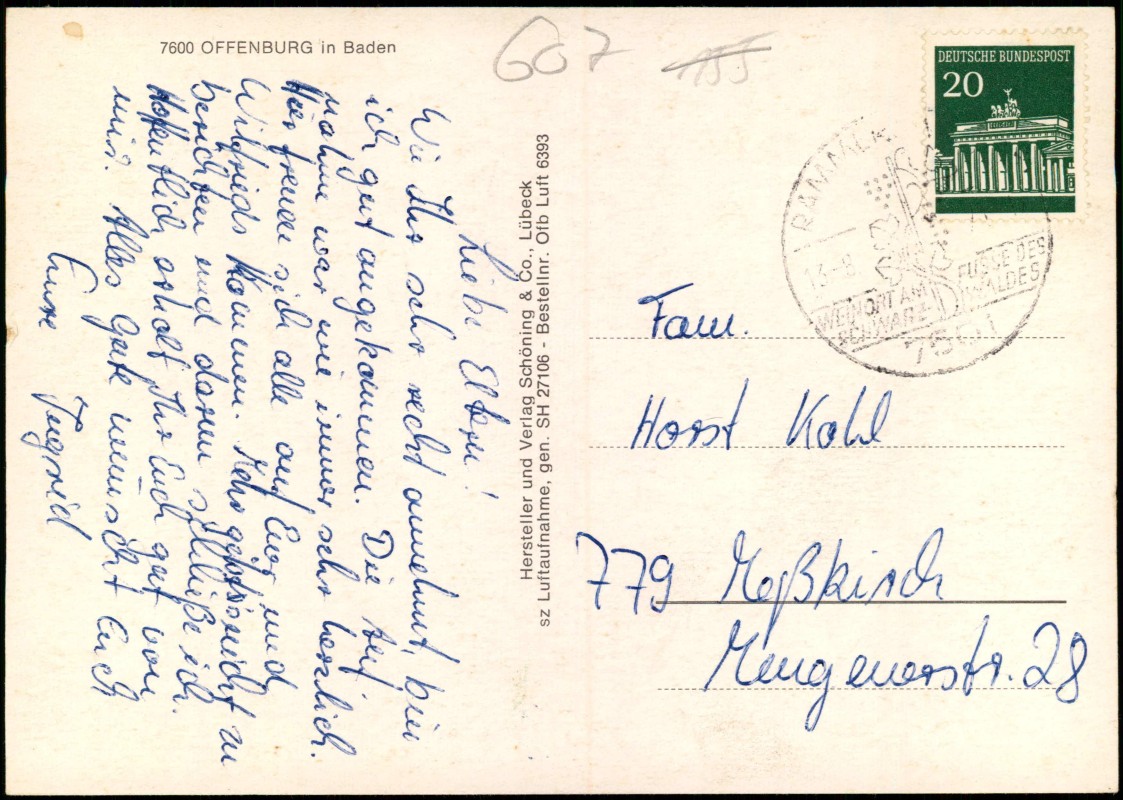 7600 OFFENBURG in Baden
607
155
DEUTSCHE BUNDESPOST
20
RAMM
13.-8
WEINORT AM FUSSE DES
SCHWARZWALDES
7601
Liebe Eltern!
Wie Ihr sehr recht annehmt, bin
ich gut angekommen. Die Auf-
nahme war wie immer sehr herzlich.
Hier freuen sich alle auf Euer und
Wilfrieds Kommen. Mehr gibts nicht zu
berichten und darum schließe ich.
Hoffentlich erholt Ihr Euch gut von
mir. Alles Gute wünscht Euch
Eure Ingrid
Hersteller und Verlag Schöning & Co., Lübeck
sz Luftaufnahme, gen. SH 27106 - Bestellnr. Ofb Luft 6393
Fam.
Horst Kohl
779 Meßkirch
Mengenerstr. 28